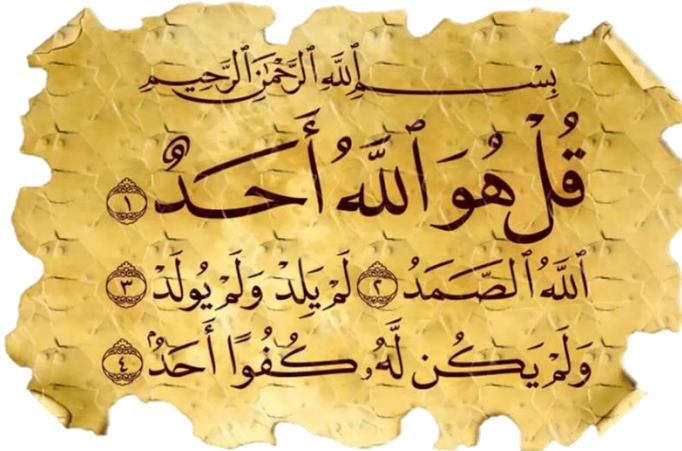 بِسْمِ ٱللَّهِ ٱلرَّحْمَٰنِ ٱلرَّحِيمِ
قُلْ هُوَ ٱللَّهُ أَحَدٌ ١
ٱللَّهُ ٱلصَّمَدُ ٢ لَمْ يَلِدْ وَلَمْ يُولَدْ ٣
وَلَمْ يَكُن لَّهُۥ كُفُوًا أَحَدُۢ ٤